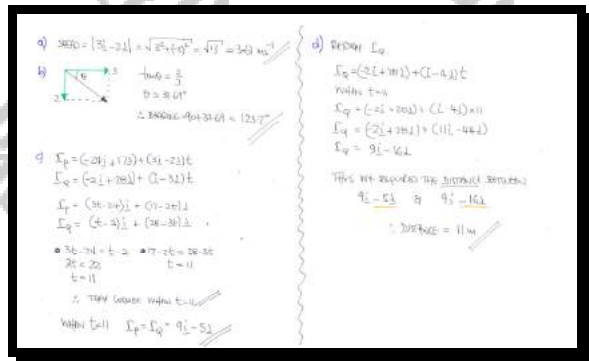 a) SPEED = |3i-2j| = √3²+(-2)² = √13 = 3.61 ms⁻¹
b) θ 3
2
tanθ = 2/3
θ = 33.69°
∴ BEARING = 90+33.69 = 123.7°
c) r_P = (-24i+17j)+(3i-2j)t
r_Q = (-2i+28j)+(i-3j)t
r_P = (3t-24)i + (17-2t)j
r_Q = (t-2)i + (28-3t)j
3t-24 = t-2 17-2t = 28-3t
2t = 22 t = 11
t = 11
∴ THEY COLLIDE WHEN t=11
WHEN t=11 r_P = r_Q = 9i-5j
d) r_Q
r_Q = (-2i+28j)+(i-4j)t
WHEN t=11
r_Q = (-2i+28j)+(i-4j)×11
r_Q = (-2i+28j)+(11i-44j)
r_Q = 9i-16j
THUS WE REQUIRED THE DISTANCE BETWEEN
9i-5j & 9i-16j
∴ DISTANCE = 11 m